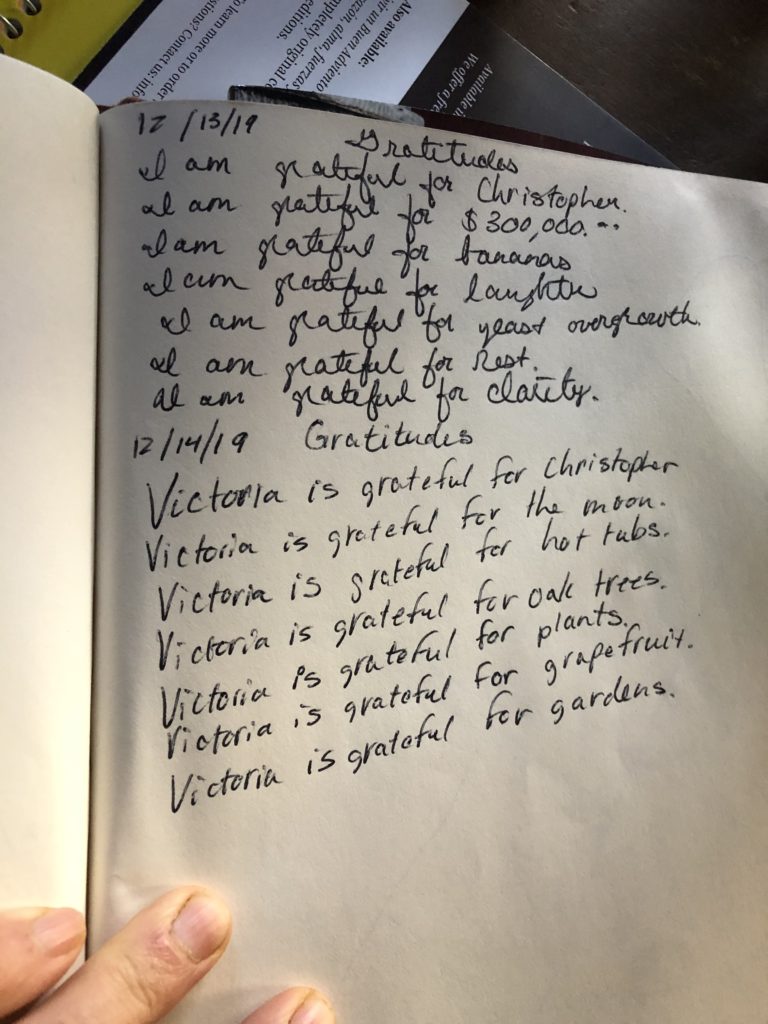 To learn more or to order
estions? Contact us: info
Also available:
vir un Buen Adviento
razón, alma, fuerzas
mpletely original co
editions.
Available in
We offer a fre
12/13/19
Gratitudes
I am grateful for Christopher.
I am grateful for $300,000...
I am grateful for bananas
I am grateful for laughter
I am grateful for yeast overgrowth.
I am grateful for Rest.
I am grateful for clarity.
12/14/19 Gratitudes
Victoria is grateful for Christopher
Victoria is grateful for the moon.
Victoria is grateful for hot tubs.
Victoria is grateful for oak trees.
Victoria is grateful for plants.
Victoria is grateful for grapefruit.
Victoria is grateful for gardens.